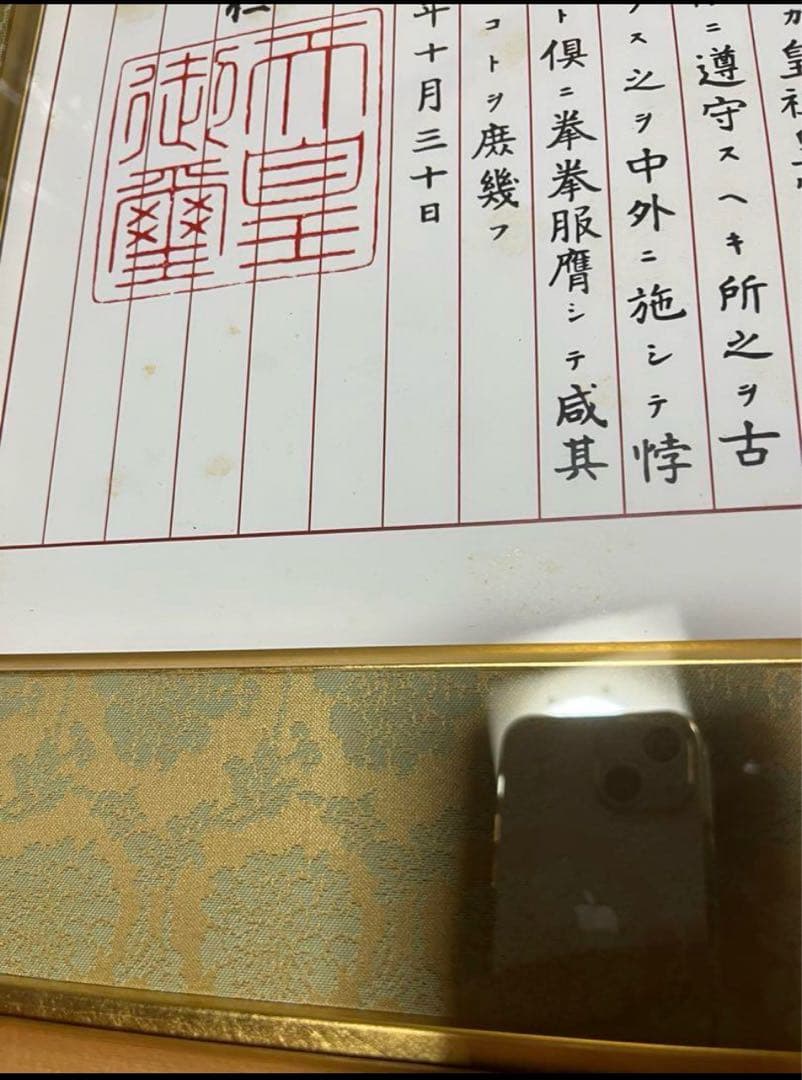 皇祖皇
ニ遵守スヘキ所之ヲ古
ス之ヲ中外ニ施シテ悖
ト俱ニ拳拳服膺シテ咸其
コトヲ庶幾フ
年十月三十日
天皇
御璽